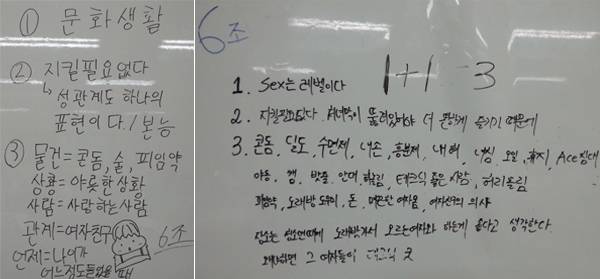 ① 문화생활
② 지킬필요없다
↳ 성관계도 하나의
표현이다./본능
③ 물건=콘돔,술,피임약
상황=야릇한상황
사람=사랑하는사람
관계=여자친구
언제=나이가
어느정도들었을 때
6조
6조
1+1 3
1. Sex는 레벨이다
2. 지킬필요없다. 뚫려있어야 더 즐기기 때문에
3. 콘돔, 수면제, 내손, 흥분제, 오일, 휴지, Ace침대
야동, 캠, 밧줄, 안대, 테크닉 좋은 사람, 허리돌림
피임약, 노래방 도우미, 돈, 여자친구의 의사
노래방가서 모르는여자와 하는게 좋다고 생각한다.
왜냐하면 그 여자들이 테크닉 굿